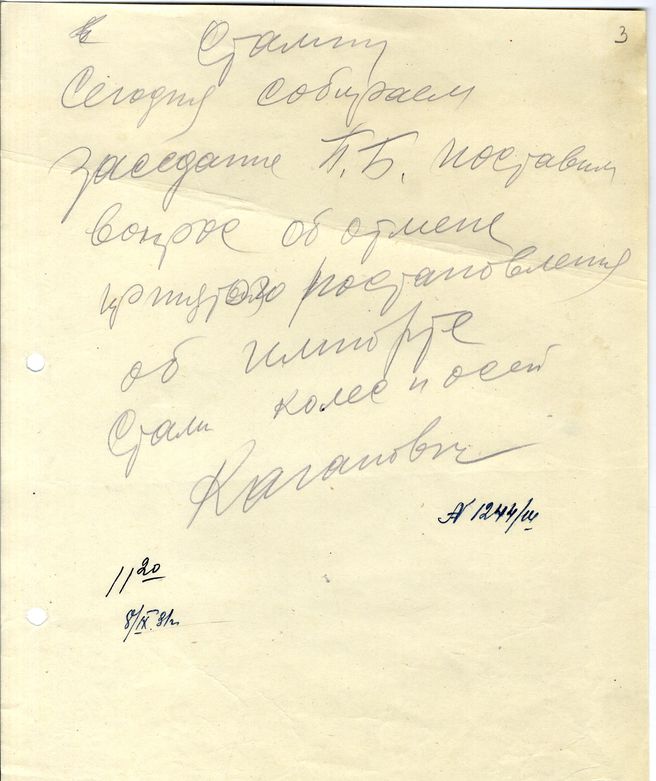 3
Сталину
Сегодня собираем
заседание П.Б. поставим
вопрос об отмене
принятого постановления
об импорте
Стали колес и осей
Каганович
N 1244/ш
11 20
8/IX.31г.